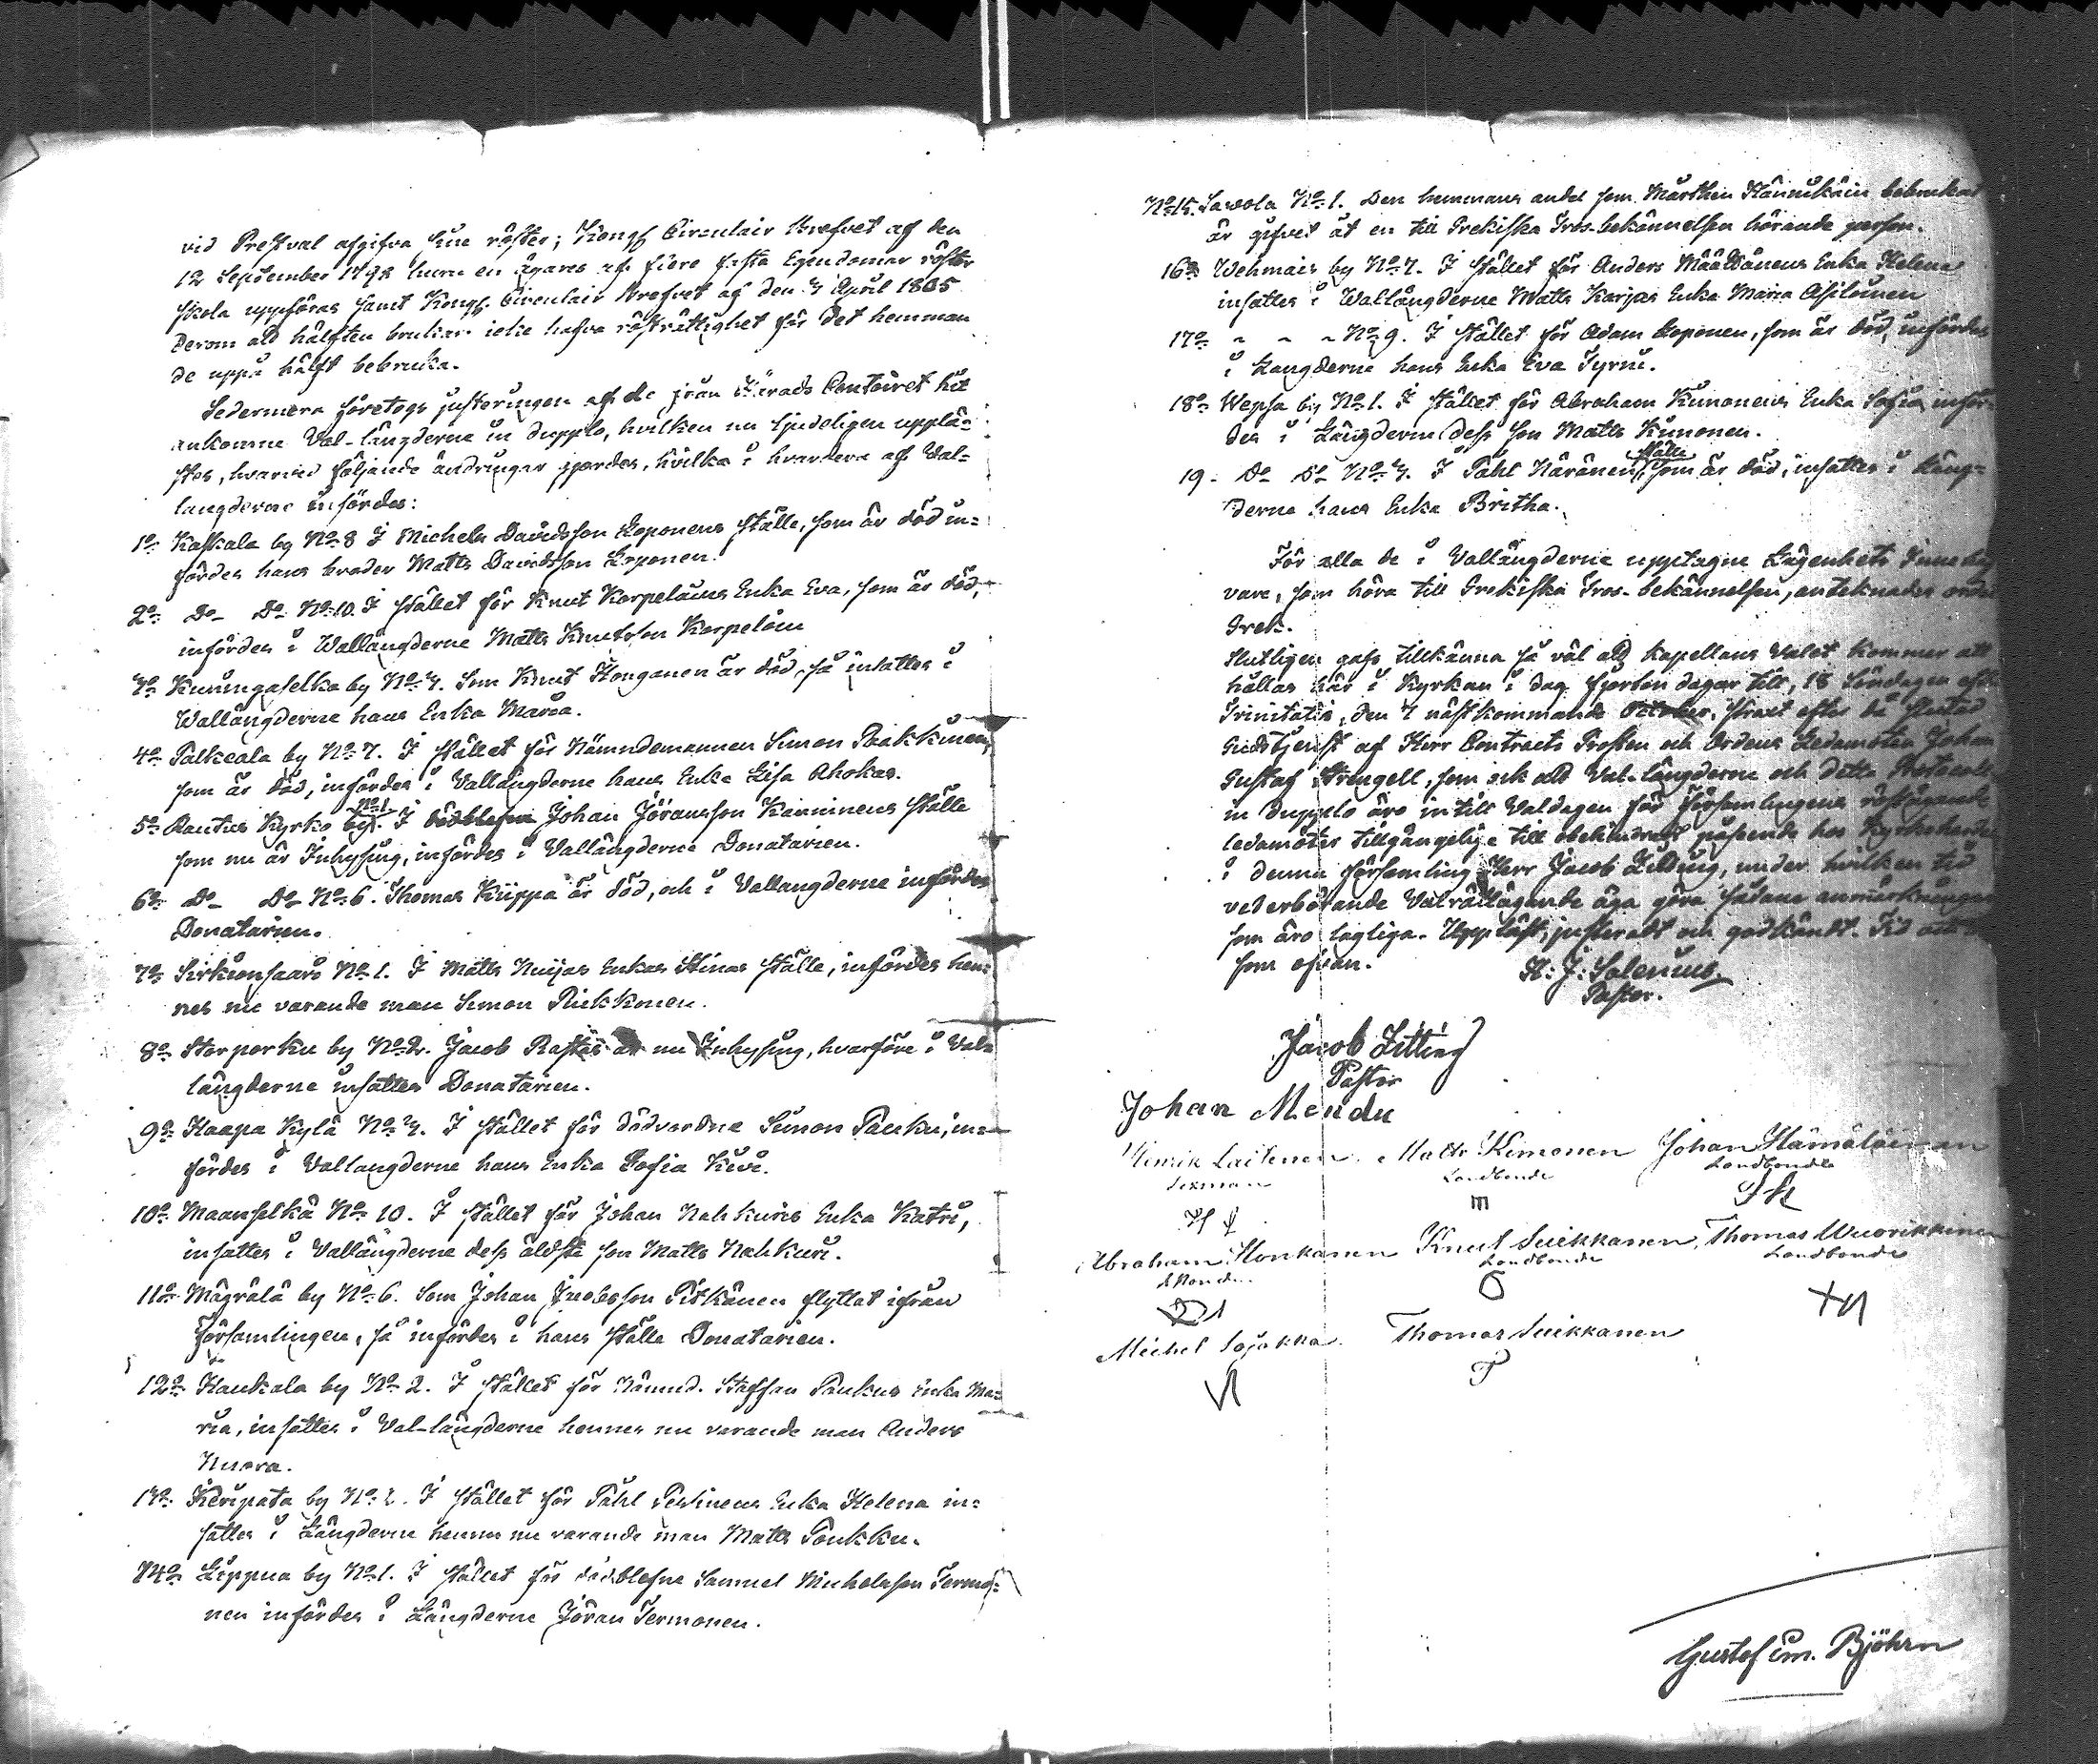 vid Prestval afgifva sine röster; Kongl Circulair Brefvet af den
12 September 1798 huru en ägares af flere fasta Egendomar röster
skola uppföras samt Kongl. Circulair Brefvet af den 3 April 1805
derom att hälften brukar icke hafva rösträttighet för det hemman
de uppå hälft bebruka.
Sedermera företogs justeringen af de från Härads Contoiret hit
ankomne Val-längderne in dupplo, hvilken nu ljudeligen upplä-
stes, hvarvid följande ändringar gjordes, hvilka i hvardera af Val-
langderne infördes:
1o Kaskala by No 8 I Michels Davidsson Loponens ställe, som är död in-
fördes hans broder Matts Davidsson Loponen.
2o Do Do No 10. I stället för Knut Karpelains Enka Eva, som är död,
infördes i Wallängderne Matts Knutsson Karpelain
3o Kuningaselka by No 3. Som Knut Honganen är död, så insattes i
Wallängderne hans Enka Maria.
4o Palkeala by No 7. I stället för Nämndemannen Simon Paakkinen,
som är död, infördes i Vallängderne hans Enka Lisa Ahokas.
5o Rautus Kyrko by No 1. I Johan Jöransson Kaininens ställe
som nu är Inhysing, infördes i Vallängderne Donatarien.
6o Do Do No 6. Thomas Kiippa är död, och i Vallangderne infördes
Donatarien.
7o Sirkiensaari No 1. I Matts Nuijas Enkas Stinas ställe, infördes hen-
nes nu varande man Simon Riekkonen.
8o Storporku by No 2. Jacob Rastas är nu Inhysing, hvarföre i Val-
längderne insattes Donatarien.
9o Haapa Kylä No 3. I stället för dödvordne Simon Paukku, in-
fördes i Vallangderne hans Enka Sofia Kivi.
10o Maanselkä No 10. I stället för Johan Nahkuris Enka Katri,
insattes i Vallängderne dess äldsta son Matts Nahkuri.
11o Mägrälä by No 6. Som Johan Jacobsson Pitkänen flyttat ifrån
Församlingen, så infördes i hans ställe Donatarien.
12o Haukala by No 2. I stället för Nämnd. Staffan Paukus Enka Ma-
ria, insattes i Val-längderne hennes nu varande man Anders
Nuora.
13o Keripata by No 2. I stället för Påhl Pessinens Enka Helena in-
sattes i Längderne hennes nu varande man Matts Poukku.
14o Lippua by No 1. I stället för dödblefne Samuel Michelsson Termo-
nen infördes i Längderne Jöran Termonen.
No 15. Savola No 1. Den hemmans andel som Mårthen Hännikäin bebrukat
är gifvet åt en till Grekiska Tros-bekännelsen hörande person.
16o Wehmais by No 7. I stället för Anders Määttänens Enka Helena
insattes i Wallängderne Matts Karjas Enka Maria Asilainen
17o No 9. I stället för Adam Loponen, som är död, infördes
i Langderne hans Enka Eva Tyrni.
18o Wepsa by No 1. I stället för Abraham Kimonens Enka Sofia, inför-
des i Längderne dess son Matts Kimonen.
19 - Do Do No 3. I Påhl Näränens ställe, som är död, insattes i Läng-
derne hans Enka Britha.
För alla de i Vallängderne upptagne Lägenhets Inneha
vare, som höra till Grekiska Tros-bekännelsen, anteknades ordet
Grek.
Slutligen gafs tillkänna så väl att Kapellans Valet kommer att
hållas här i Kyrkan i dag fjorton dagar till, 18 Söndagen efter
Trinitatis, den 7 nästkommande October, straxt efter då slutad
Gudstjenst af Herr Contracts Prosten och Ordens Ledamoten Johan
Gustaf Strengell, som ock att Val-längderne och detta Protocoll
in dupplo äro intill Valdagen för Församlingens röstägande
ledamöter tillgängelige till obehindradt påseende hos Kyrkoherden
i denna församling Herr Jacob Zitting, under hvilken tid
vederbörande Valrättägande äga göra sådane anmärkningar
som äro lagliga. Uppläst, justeradt och godkändt. Tid och
som ofvan.
H: J: Solenius
Pastor.
Jacob Zitting
Pastor
Johan Mendu
Henrik Laitenen Matts Kimonen Johan Hämäläinen
Sexman Landbonde Landbonde
m
Abraham Honkanen Knut Suikkanen, Thomas Wuorikkinen
Landbonde Landbonde
Michel Sojakka. Thomas Suikkanen
T
Gustaf Em. Björn